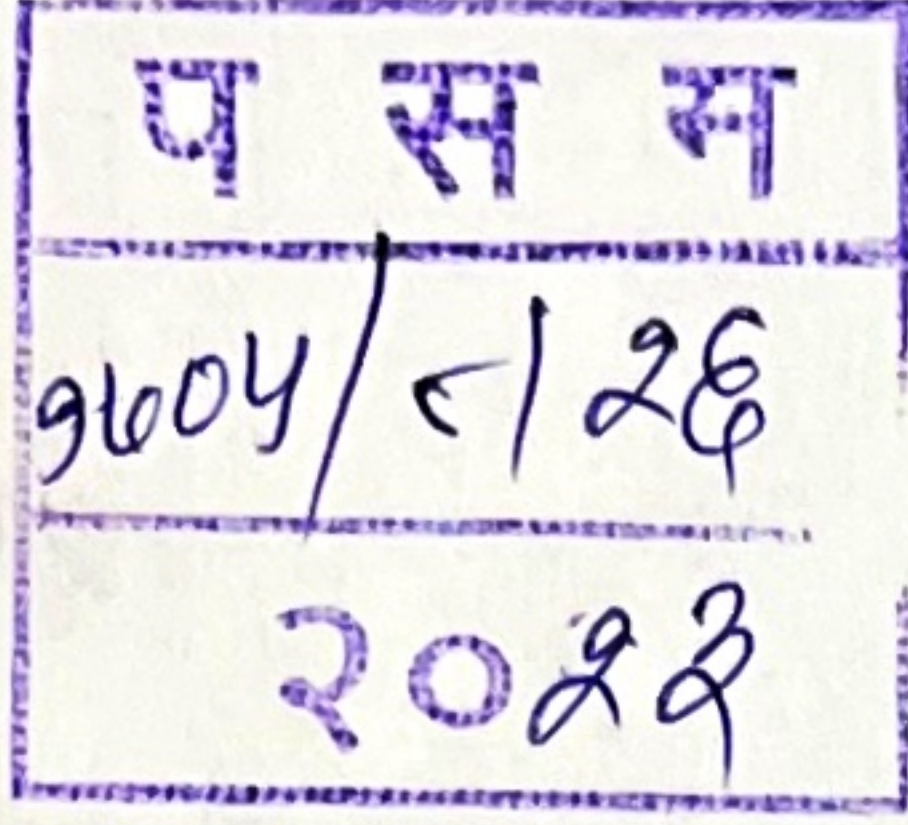 प स न
१७०५/८/२६
२०२३